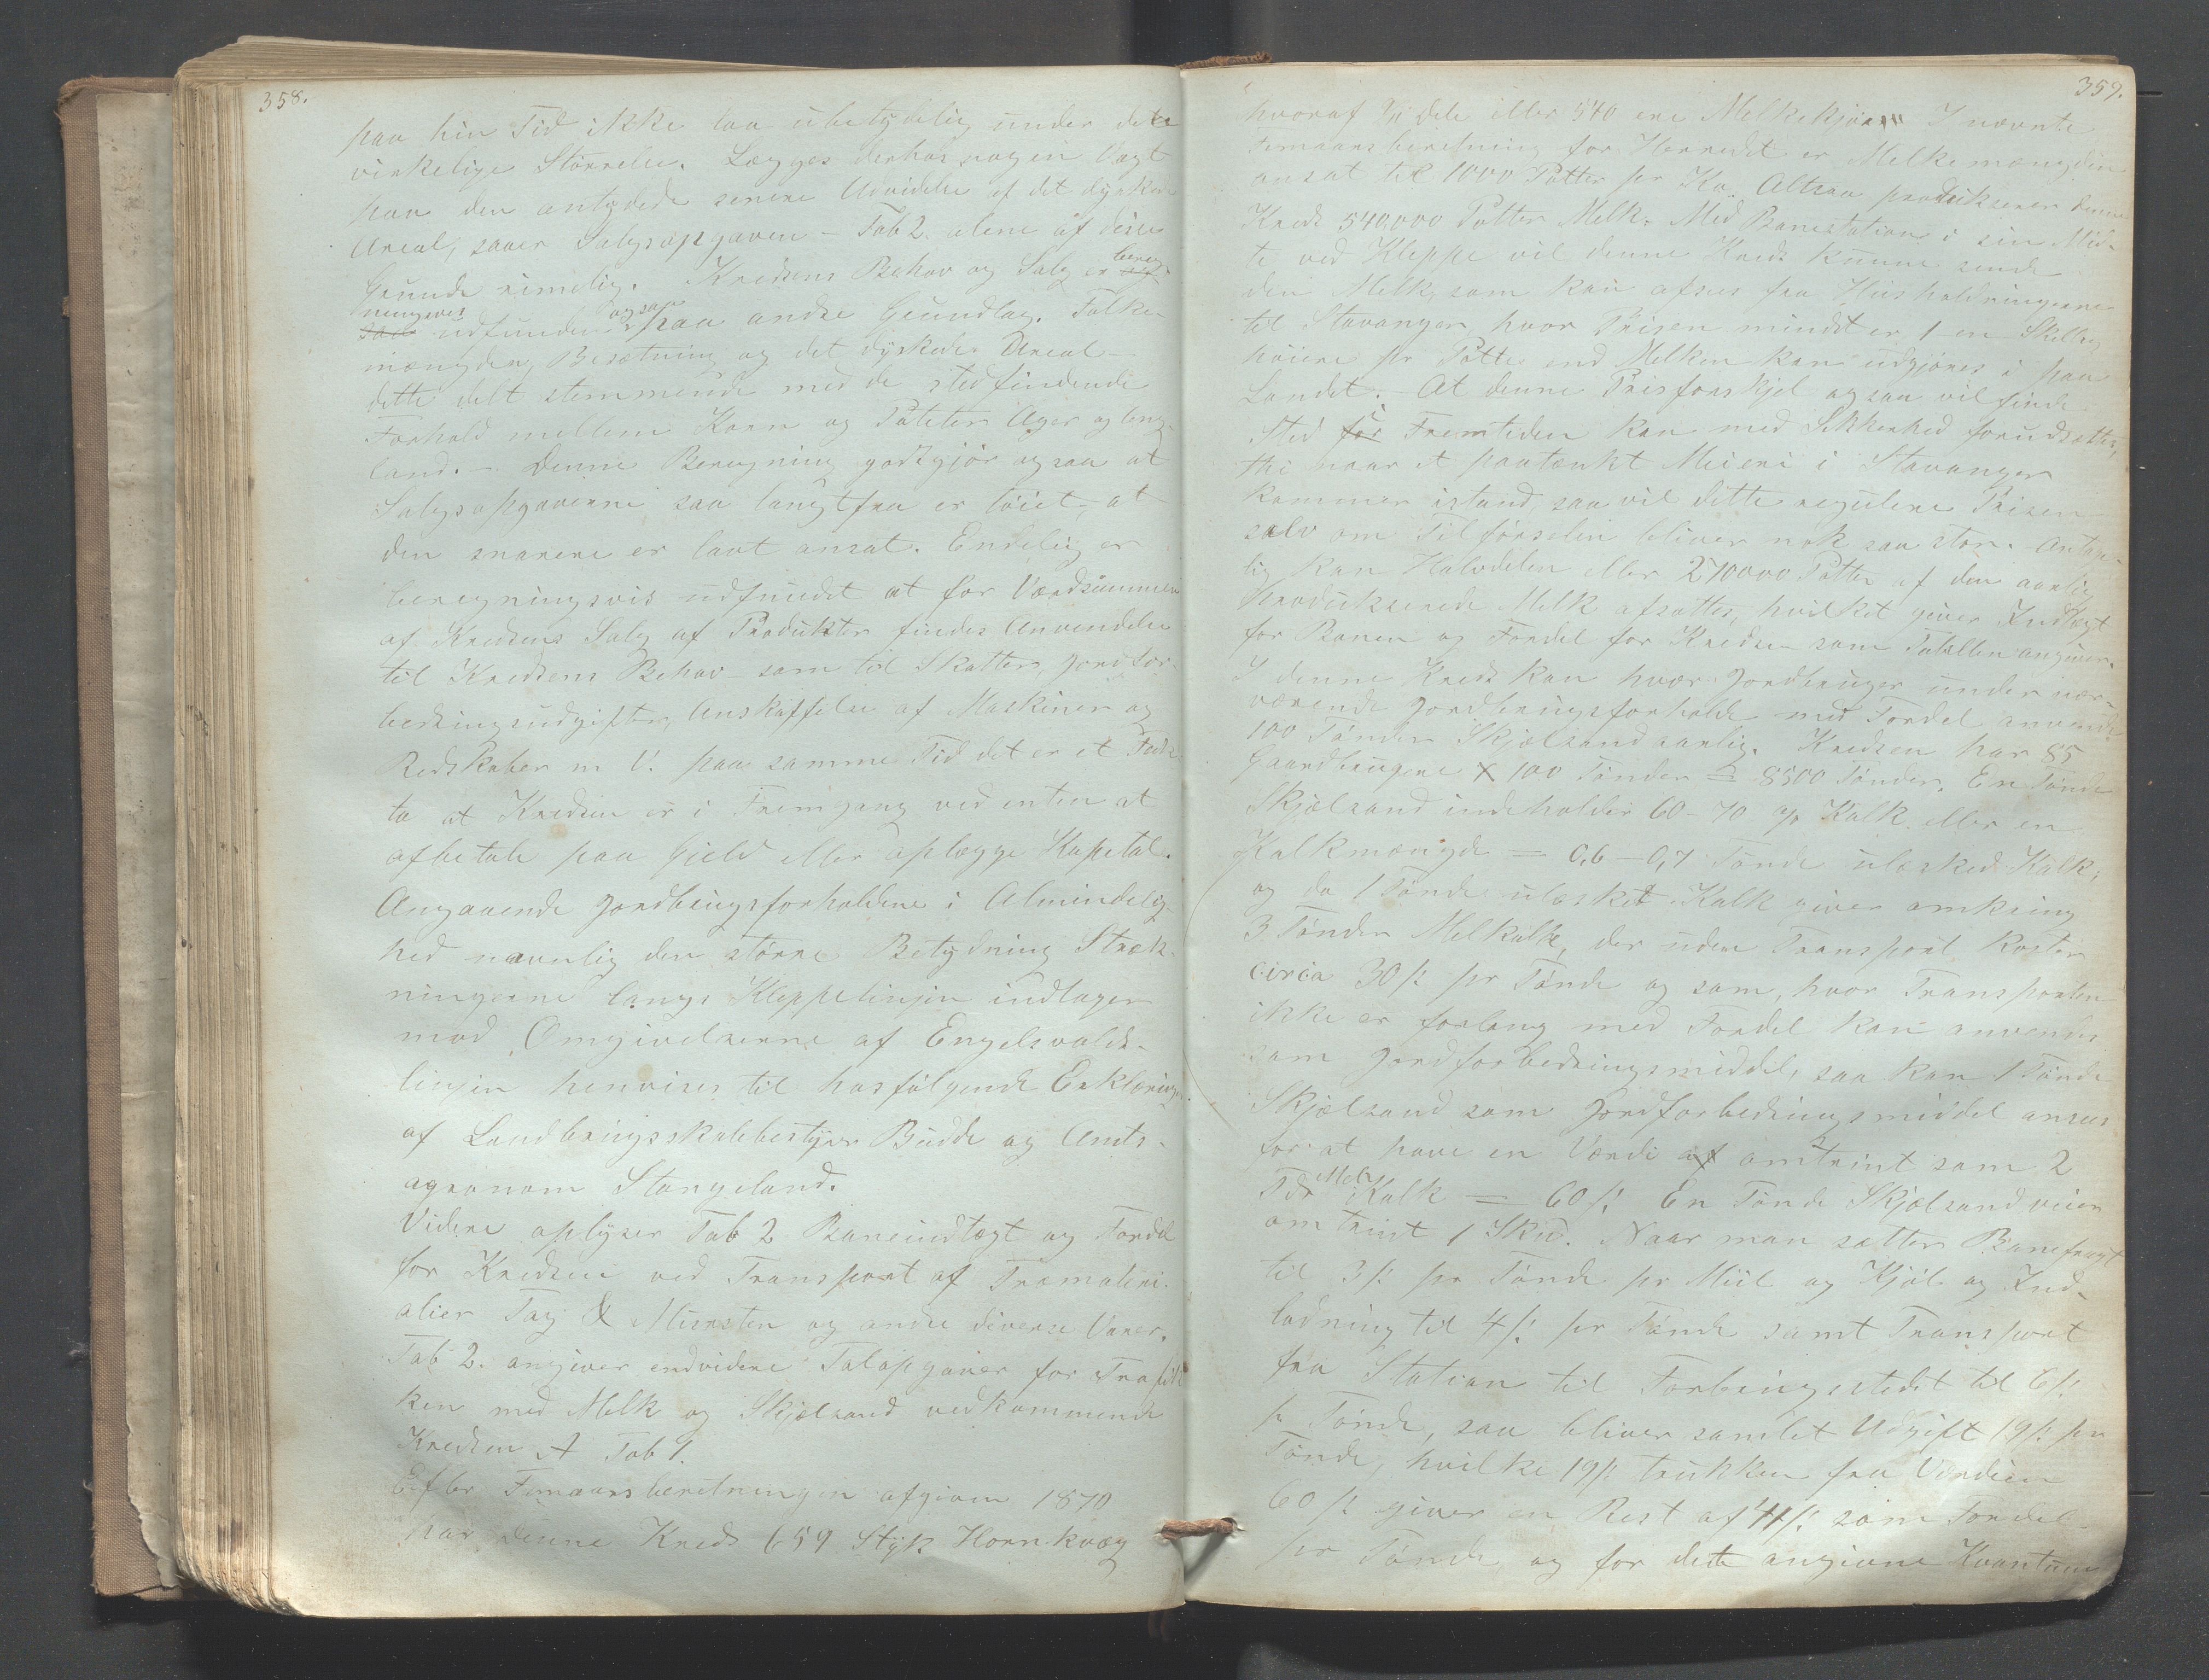 358.
paa hin Tid ikke saa ubetydelig under dete
virkelige Størrelse. Lægges derhos nogen Vægt
paa den antydede senere Udvidelse af det dyrkede
Areal, saaer Salgsopgaven - Tab 2. alene af disse
Grunde rimelig. Kredsens Behov og Salg er bereg-
ningsvis udfunden ogsaa paa andre Grundlag. Folke-
mængden, Besætning og det dyrkede Areal -
dette delt stemmende med de stedfindende
Forhold mellem Korn og Poteter Ager og Eng-
land. - Denne Beregning godtgjør ogsaa at
Salgsopgaverne saa langtfra er løiet, at
den snarere er lavt ansat. Endelig er
beregningsvis udfundet at for Værdsummen
af Kredsens Salg af Produkter findes Anvendelse
til Kredsens Behov - som til Skatter, Jordfor-
bedringsudgifter, Anskaffelse af Maskiner og
Redskaber m V. paa samme Tid det er et Fac-
ta at Kredsen er i Fremgang ved enten at
afbetale paa Gjeld eller oplægge Kapetal.
Angaaende Jordbrugsforholdene i Almindelig-
hed navnlig den større Betydning Stræk-
ningerne langs Kleppelinjen indtager
mod Omgivelserne af Engelsvolds-
linjen henvises til hosfølgende Erklæring
af Landbrugsskolebestyrer Budde og Amts-
agronom Stangeland.
Videre oplyser Tab 2 Baneindtægt og Fordel
for Kredsen ved Transport af Træmateri-
alier Tag & Mursten og andre diverse Varer.
Tab 2. angiver endvidere Talopgaver for Trafik
ken med Melk og Skjælsand vedkommende
Kredsen A Tab 1.
Efter Femaarsberetningen afgiven 1870
har denne Kreds 659 Styk Hornkvæg
359.
hvoraf dele eller 540 ere Melkekjør." I nævnte
Femaarsberetning for Herredet er Melkemængden
ansat til 1000 Potter pr Ko. Altsaa produkserer denne
Kreds 540,000 Potter Melk. Med Banestation i sin Mid-
te ved Kleppe vil denne Kreds kunne sende
den Melk, som kan afsees fra Husholdningerne
til Stavanger, hvor Prisen mindst er 1 en Skilling
høiere pr Potte end Melken kan udgjøres i paa
Landet. - At denne Prisforskjel ogsaa vil finde
Sted for Fremtiden kan med Sikkerhed forudsættes,
thi naar et paatænkt Meieri i Stavanger
kommer istand, saa vil dette regulere Prisen
selv om Tilførselen bliver nok saa stor. Antage-
lig kan Halvdelen eller 270000 Potter af den aarlig
produkserede Melk afsættes, hvilket giver Indtægt
for Banen og Fordel for Kredsen som Tabellen angiver.
I denne Kreds kan hver Jordbruger under nær-
værende Jordbrugsforholde med Fordel anvende
100 Tønder Skjælsand aarlig. Kredsen har 85
Gaardbrugere x 100 Tønder = 8500 Tønder. En Tønde
Skjælsand indeholder 60 - 70 % Kalk eller en
Kalkmængde = 0,6 - 0,7 Tønde ulæsked Kalk;
og da 1 Tønde ulæsket Kalk giver omkring
3 Tønder Melkalk, der uden Transport koster
circa 30 /: pr Tønde og som, hvor Transporten
ikke er forlang med Fordel kan anvendes
som Jordforbedringsmiddel, saa kan 1 Tønde
Skjælsand som Jordforbedringsmiddel ansees
for at have en Værdi af omtrint som 2
Tdr Mel Kalk = 60 /: En Tønde Skjælsand veier
omtrint 1 Sk℔. Naar man sætter Banefragt
til 3 /: pr Tønde pr Miil og Kjøb og Ind-
ladning til 4 /: pr Tønde samt Transport
fra Station til Forbrugsstedet til 6 /:
pr Tønde, saa bliver samlet Udgift 19 /: pr
Tønde, hvilke 19 /: trukken fra Værdien
60 /: giver en Rest af 41 /: som Fordel
pr Tønde, og for dete angivne Kvantum